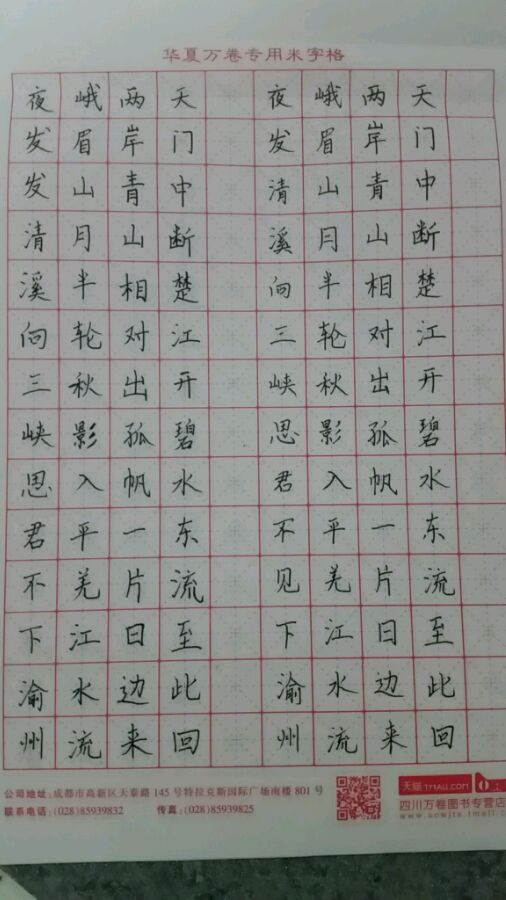 华夏万卷专用米字格
天门中断楚江开碧水东流至此回
两岸青山相对出孤帆一片日边来
峨眉山月半轮秋影入平羌江水流
夜发清溪向三峡思君不见下渝州
天门中断楚江开碧水东流至此回
两岸青山相对出孤帆一片日边来
峨眉山月半轮秋影入平羌江水流
夜发发清溪向三峡思君不下渝州
公司地址:成都市高新区天泰路 145 号特拉克斯国际广场南楼 801 号
联系电话:(028)85939832 传真:(028)85939825
天猫 TMALL.COM
四川万卷图书专营店